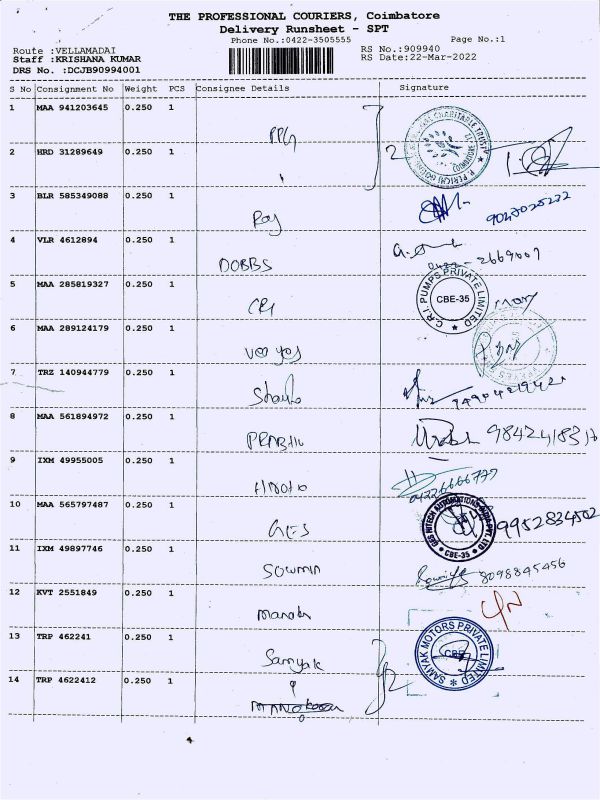 THE PROFESSIONAL COURIERS, Coimbatore
Delivery Runsheet - SPT
Phone No.:0422-3505555 Page No.:1
Route :VELLAMADAI RS No.:909940
Staff :KRISHANA KUMAR RS Date:22-Mar-2022
DRS No. :DCJB90994001
S No Consignment No Weight PCS Consignee Details Signature
1 MAA 941203645 0.250 1
2 HRD 31289649 0.250 1
2
3 BLR 585349088 0.250 1
Roy
4 VLR 4612894 0.250 1
DOBBS 0422-2669007
5 MAA 285819327 0.250 1
CRI
C.R.I. PUMPS PRIVATE LIMITED
CBE-35
6 MAA 289124179 0.250 1
7 TRZ 140944779 0.250 1
8 MAA 561894972 0.250 1
PRABHU
9 IXM 49955005 0.250 1
04226666777
10 MAA 565797487 0.250 1
GES 9952834502
CBE-35
11 IXM 49897746 0.250 1
SOWMIA 8098845456
12 KVT 2551849 0.250 1
13 TRP 462241 0.250 1
Samyak
SAMYAK MOTORS PRIVATE LIMITED
CBE
14 TRP 4622412 0.250 1
2